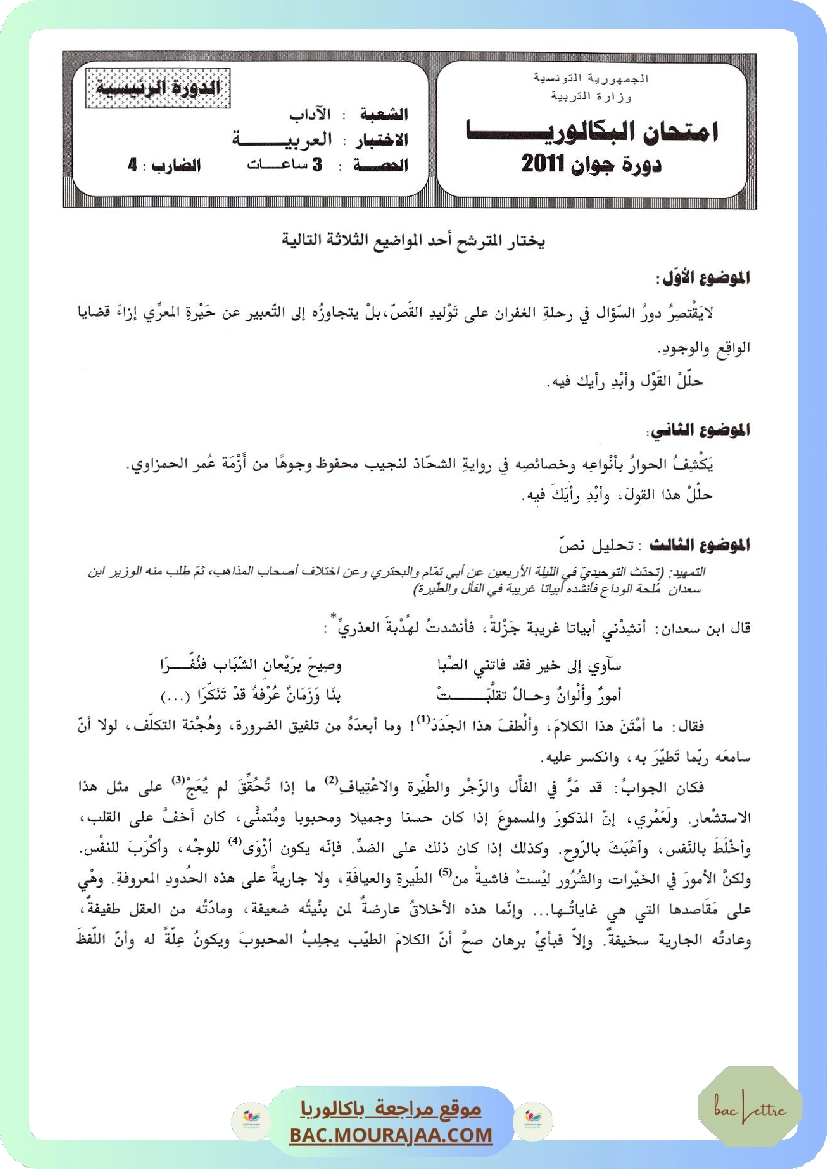 الجمهورية التونسية
وزارة التربية
امتحان البكالوريـــا
دورة جوان 2011
الدورة الرئيسية
الشعبة : الآداب
الاختبار : العربيـــة
الحصـــة : 3 ساعـــات الضارب : 4
يختار المترشح أحد المواضيع الثلاثة التالية
الموضوع الأوّل:
لايَقْتصِرُ دورُ السّؤال في رحلةِ الغفران على تَوْليدِ القَصّ،بلْ يتجاوزُه إلى التّعبير عن حَيْرةِ المعرّي إزاءَ قضايا
الواقِع والوجودِ.
حلّلْ القَوْل وأبْدِ رأيك فيه.
الموضوع الثاني:
يَكْشِفُ الحوارُ بأنْواعِه وخصائصِه في روايةِ الشحّاذ لنجيب محفوظ وجوهًا من أزْمَة عُمر الحمزاوي.
حلّلْ هذا القولَ، وأبْدِ رأيَكَ فيه.
الموضوع الثالث : تحليل نصّ
التمهيد: (تحدّث التوحيديّ في الليلة الأربعين عن أبي تمّام والبحتري وعن اختلاف أصحاب المذاهب، ثمّ طلب منه الوزير ابن
سعدان مُلحة الوداع فأنشده أبياتا غريبة في الفأل والطّيرة)
قال ابن سعدان: أنشِدْني أبياتا غريبة جَزْلةً، فأنشدتُ لهُدْبةَ العذريِّ*:
سآوي إلى خير فقد فاتني الصِّبا وصِيحَ بِرَيْعانِ الشّبَاب فنُفِّـــرَا
أمورٌ وألْوانٌ وحـالٌ تقلَّبَـــــتْ بنَا وَزَمَانٌ عُرْفهُ قدْ تَنَكّرَا (...)
فقال: ما أمْتَنَ هذا الكلامَ، وألْطفَ هذا الجدَدَ(1)! وما أبعدَهُ من تلفيق الضرورة، وهُجْنة التكلّف، لولا أنّ
سامعَه ربّما تَطيّرَ به، وانكسر عليه.
فكان الجوابُ: قد مَرَّ في الفأْل والزّجْر والطِّيَرة والاعْتِيافِ(2) ما إذا تُحُقِّقَ لم يُعَجْ(3) على مثل هذا
الاستشْعار. ولَعَمْري، إنّ المذكورَ والمسموعَ إذا كان حسنا وجميلا ومحبوبا ومُتمنًّى، كان أخفَّ على القلب،
وأخْلَطَ بالنّفس، وأعْبَثَ بالرّوح. وكذلك إذا كان ذلك على الضدّ. فإنّه يكون أزْوَى(4) للوجْه، وأكْرَبَ للنفْس.
ولكنّ الأمورَ في الخيْرات والشُرُور ليْستْ فاشيةً من(5) الطّيرةِ والعيافَةِ، ولا جاريةً على هذه الحُدودِ المعروفةِ. وهْي
على مَقَاصدها التي هي غاياتُـها... وإنّما هذه الأخلاقُ عارضةٌ لمن بِنْيتُه ضعيفة، ومادّتُه من العقل طفيفةٌ،
وعادتُه الجارية سخيفةٌ. وإلاّ فبأيِّ برهان صحَّ أنّ الكلامَ الطيّب يجلِبُ المحبوبَ ويكونُ عِلّةً له وأنّ اللّفظَ
موقع مراجعة باكالوريا
BAC.MOURAJAA.COM
bac Lettre